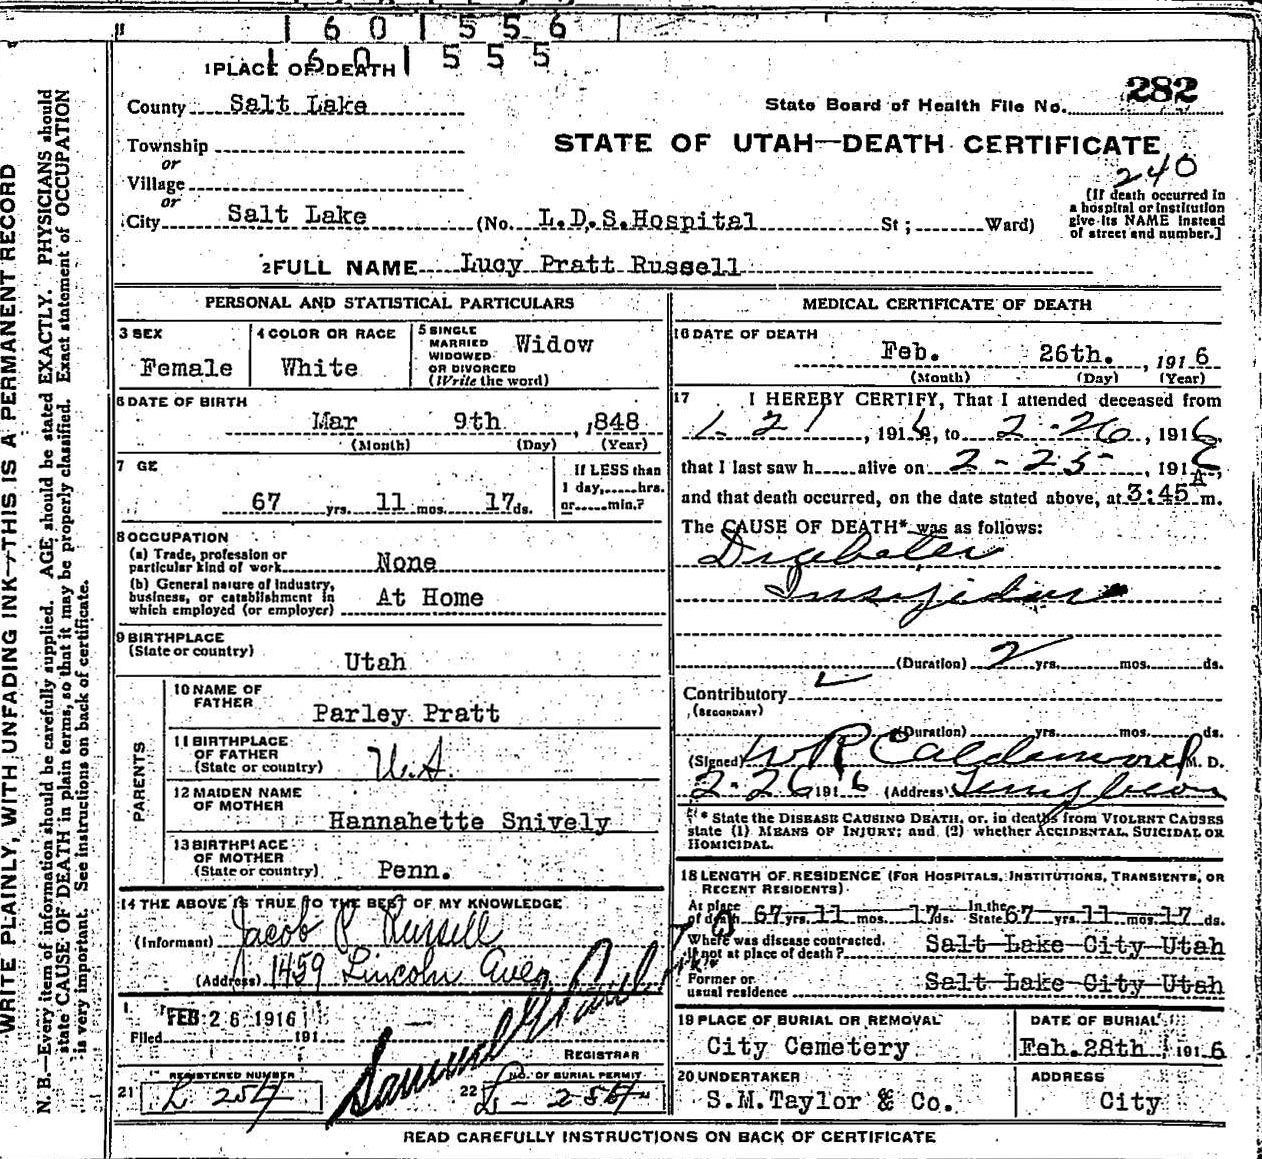 1 6 0 1 5 5 6
1 6 0 1 5 5 5
1 PLACE OF DEATH
County Salt Lake
State Board of Health File No. 282
Township
or
Village
or
City Salt Lake (No. L.D.S.Hospital St; Ward)
STATE OF UTAH—DEATH CERTIFICATE
240
[If death occurred in
a hospital or institution
give its NAME instead
of street and number.]
2 FULL NAME Lucy Pratt Russell
PERSONAL AND STATISTICAL PARTICULARS
3 SEX
Female
4 COLOR OR RACE
White
5 SINGLE
MARRIED
WIDOWED
OR DIVORCED
(Write the word)
Widow
6 DATE OF BIRTH
Mar 9th , 1848
(Month) (Day) (Year)
7 GE
67 yrs. 11 mos. 17 ds.
If LESS than
1 day, hrs.
or min.?
8 OCCUPATION
(a) Trade, profession or
particular kind of work None
(b) General nature of industry,
business, or establishment in
which employed (or employer) At Home
9 BIRTHPLACE
(State or country)
Utah
PARENTS
10 NAME OF
FATHER
Parley Pratt
11 BIRTHPLACE
OF FATHER
(State or country) U.S.
12 MAIDEN NAME
OF MOTHER
Hannahette Snively
13 BIRTHPLACE
OF MOTHER
(State or country) Penn.
14 THE ABOVE IS TRUE TO THE BEST OF MY KNOWLEDGE
(Informant) Jacob P Russell
(Address) 1459 Lincoln Aven
Filed FEB 26 1916 191
REGISTRAR
REGISTERED NUMBER
21 L 254
NO. OF BURIAL PERMIT
22 L - 254
MEDICAL CERTIFICATE OF DEATH
16 DATE OF DEATH
Feb. 26th. , 1916
(Month) (Day) (Year)
17 I HEREBY CERTIFY, That I attended deceased from
1 21 , 1916, to 2-26 , 1916,
that I last saw h alive on 2-25 , 1916,
and that death occurred, on the date stated above, at 3:45 A m.
The CAUSE OF DEATH* was as follows:
Diabetes
Insipidus
(Duration) 2 yrs. mos. ds.
Contributory
(SECONDARY)
(Duration) yrs. mos. ds.
(Signed) W R Calderwood M. D.
2-26 1916 (Address)
* State the DISEASE CAUSING DEATH, or, in deaths from VIOLENT CAUSES
state (1) MEANS OF INJURY; and (2) whether ACCIDENTAL, SUICIDAL OR
HOMICIDAL.
18 LENGTH OF RESIDENCE (FOR HOSPITALS, INSTITUTIONS, TRANSIENTS, OR
RECENT RESIDENTS)
At place
of death 67 yrs. 11 mos. 17 ds. In the
State 67 yrs. 11 mos. 17 ds.
Where was disease contracted,
if not at place of death? Salt Lake City Utah
Former or
usual residence Salt Lake City Utah
19 PLACE OF BURIAL OR REMOVAL
City Cemetery
DATE OF BURIAL
Feb. 28th 1916
20 UNDERTAKER
S.M.Taylor & Co.
ADDRESS
City
READ CAREFULLY INSTRUCTIONS ON BACK OF CERTIFICATE
WRITE PLAINLY, WITH UNFADING INK—THIS IS A PERMANENT RECORD
N. B.—Every item of information should be carefully supplied. AGE should be stated EXACTLY. PHYSICIANS should
state CAUSE OF DEATH in plain terms, so that it may be properly classified. Exact statement of OCCUPATION
is very important. See instructions on back of certificate.